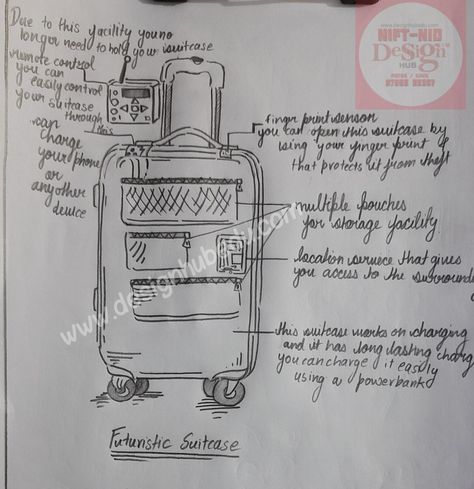 Due to this facility you no
longer need to hold your suitcase
remote control
you can
easily control
your suitcase
through
this
can
charge
your phone
or
any other
device
www.designhubedu.com
NIFT-NID
DeSign
HUB
finger print sensor
you can open this suitcase by
using your finger print &
that protects it from theft
multiple pouches
for storage facility
location service that gives
you access to the
this suitcase works on charging
and it has long lasting
you can charge it easily
using a powerbank
www.designhubedu.com
Futuristic Suitcase